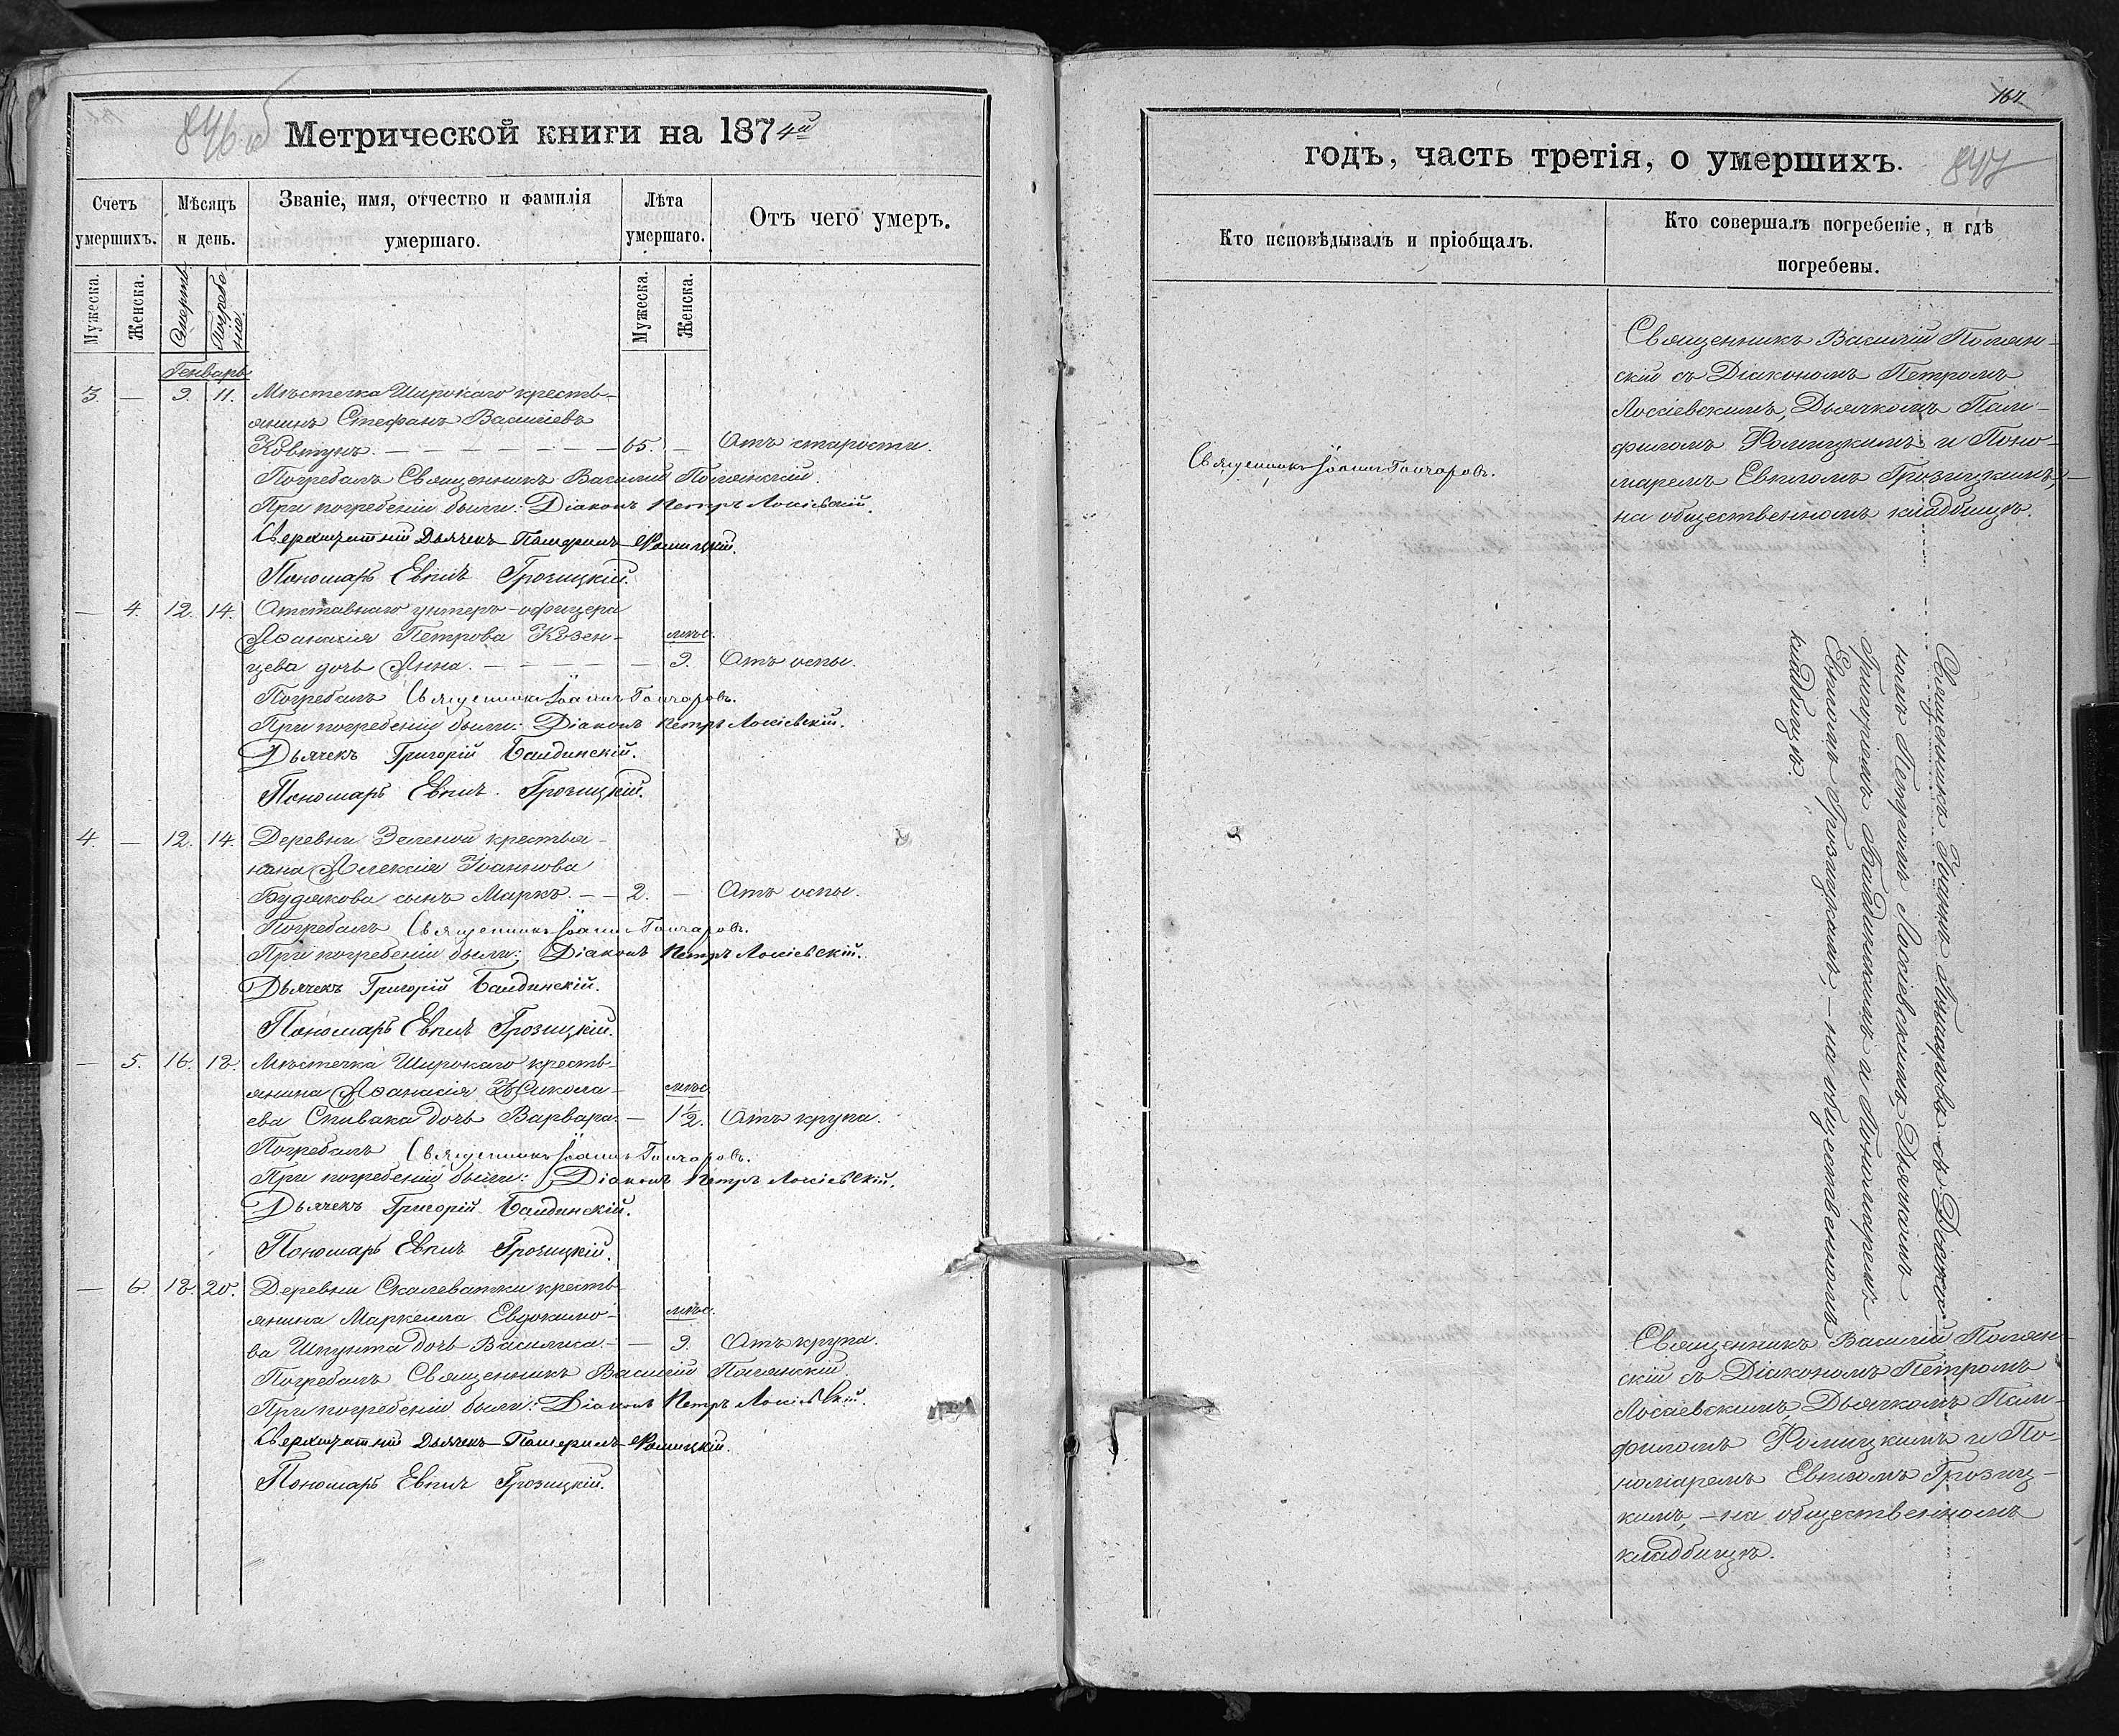 846 об
Метрической книги на 1874й
Счетъ умершихъ.
Мѣсяцъ и день.
Званіе, имя, отчество и фамилія умершаго.
Лѣта умершаго.
Отъ чего умеръ.
Мужеска.
Женска.
Смерти.
Погребенія.
Мужеска.
Женска.
Генварь
3. — 9. 11. Мѣстечка Широкаго кресть-
янинъ Стефанъ Васильевъ
Ковтунъ. — 65. — Отъ старости.
Погребалъ Священникъ Василій Полянскій.
При погребеніи были: Діаконъ Петръ Лосіевскій.
Сверхштатній Дьячекъ Памфилъ Ромицкій.
Пономарь Евпилъ Грозицкій.
— 4. 12. 14. Отставнаго унтеръ-офицера
Аѳанасія Петрова Козен- мѣс.
цева дочь Анна. — 9. Отъ оспы.
Погребалъ Священникъ Іоаннъ Гончаровъ.
При погребеніи были: Діаконъ Петръ Лосіевскій.
Дьячекъ Григорій Балдинскій.
Пономарь Евпилъ Грозицкій.
4. — 12. 14. Деревни Зеленой крестья-
нина Алексія Іоаннова
Будякова сынъ Маркъ. — 2. — Отъ оспы.
Погребалъ Священникъ Іоаннъ Гончаровъ.
При погребеніи были: Діаконъ Петръ Лосіевскій.
Дьячекъ Григорій Балдинскій.
Пономарь Евпилъ Грозицкій.
— 5. 16. 18. Мѣстечка Широкаго кресть-
янина Аѳанасія Никола- мѣс.
ева Спивака дочь Варвара. — 1½. Отъ крупа.
Погребалъ Священникъ Іоаннъ Гончаровъ.
При погребеніи были: Діаконъ Петръ Лосіевскій.
Дьячекъ Григорій Балдинскій.
Пономарь Евпилъ Грозицкій.
— 6. 18. 20. Деревни Скалеватки кресть-
янина Маркелла Евдокимо- мѣс.
ва Шпунта дочь Васились. — 9. Отъ крупа.
Погребалъ Священникъ Василій Полянскій.
При погребеніи были: Діаконъ Петръ Лосіевскій.
Сверхштатній Дьячекъ Памфилъ Ромицкій.
Пономарь Евпилъ Грозицкій.
167.
годъ, часть третія, о умершихъ. 847
Кто исповѣдывалъ и пріобщалъ.
Кто совершалъ погребеніе, и гдѣ
погребены.
Священникъ Іоаннъ Гончаровъ.
Священникъ Василій Полян-
скій съ Діакономъ Петромъ
Лосіевскимъ, Дьячкомъ Пам-
филомъ Ромицкимъ и Поно-
маремъ Евпломъ Грозицкимъ, —
на общественномъ кладбищѣ.
Священникъ Іоаннъ Гончаровъ съ Діако-
номъ Петромъ Лосіевскимъ, Дьячкомъ
Григоріемъ Балдинскимъ и Пономаремъ
Евпломъ Грозицкимъ, — на общественномъ
кладбищѣ.
Священникъ Василій Полян-
скій съ Діакономъ Петромъ
Лосіевскимъ, Дьячкомъ Пам-
филомъ Ромицкимъ и По-
номаремъ Евпломъ Грозиц-
кимъ, — на общественномъ
кладбищѣ.